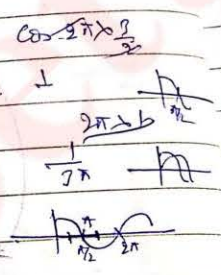 cos 2π × 3/2
1
π/2
2π × b
1/3π
π
π/2 2π